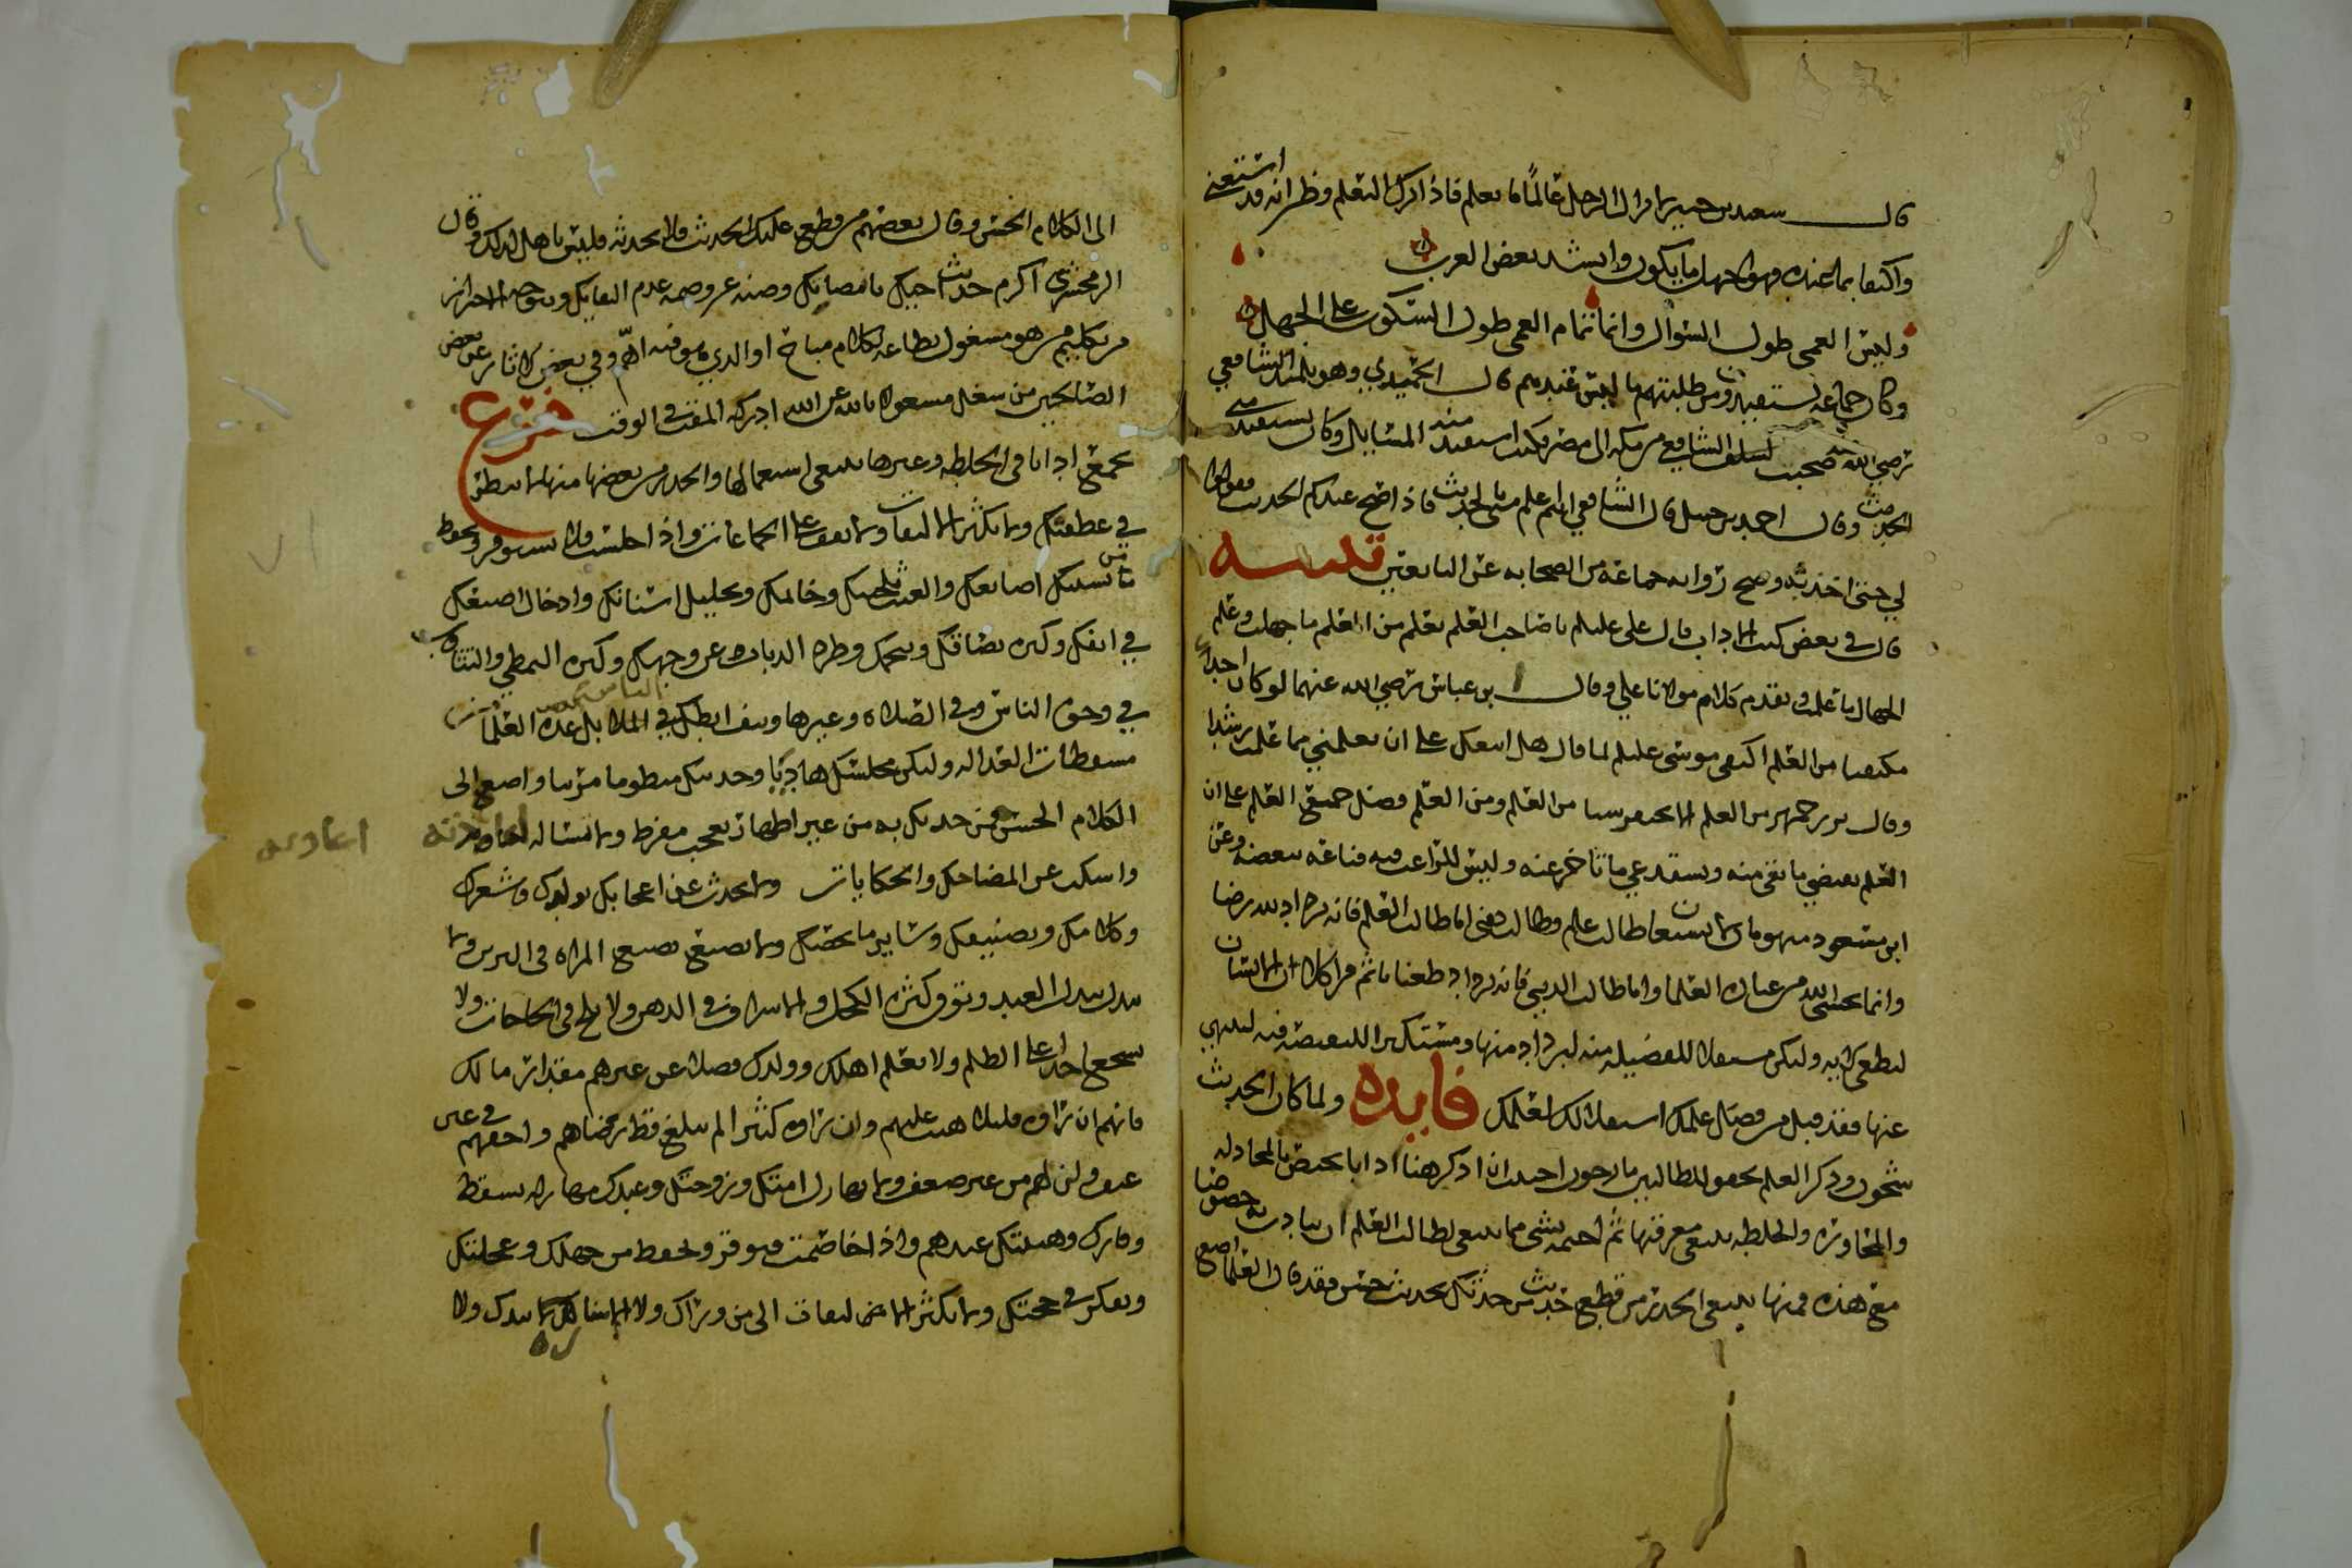 قال سعيد بن جبير لا يزال الرجل عالما ما تعلم فاذا ترك التعلم وظن انه قد استغنى
واكتفا بما عنده فهو اجهل ما يكون وانشد بعض العرب
وليس العمى طول السؤال وانما تمام العمى طول السكوت على الجهل
وكان جماعة يستفيدون من طلبتهم ما ليس عندهم قال الحميدي وهو تلميذ الشافعي
رضي الله عنه صحبت الشافعي من مكه الى مصر فكنت استفيد منه المسايل وكان يستفيد مني
الحديث وقال احمد بن حنبل قال الشافعي انتم اعلم مني بالحديث فاذا صح عندكم الحديث فقولوا
لي حتى اخذ به وصح رواية جماعة من الصحابه عن التابعين تنبيه
قال في بعض كتب الاداب قال على عليلم يا صاحب العلم تعلم من العلم ما جهلت وعلم
الجهال ما علمت وتقدم كلام مولانا علي وقال ابن عباس رضي الله عنهما لو كان احدا
مكتفيا من العلم اكتفى موسى عليلم لما قال هل اتبعك على ان تعلمني مما علمت رشدا
وقال بزرجمهر من العلم الا تحتقر شيا من العلم ومن العلم فضل جميع العلم على ان
العلم يقتضي ما بقي منه ويستدعي ما تاخر عنه وليس للراغب فيه قناعة ببعضه وعن
ابن مسعود منهومان لا يشبعان طالب علم وطالب دنيا اما طالب العلم فانه يزداد لله رضا
وانما يخشى الله من عباده العلما واما طالب الدنيا فانه يزداد طغيانا ثم قرا كلا ان الانسان
ليطغى الايه وليكن مستقلا للفضيله منه ليزداد منها ومستكثرا للنقيصة فيه لينتهي
عنها فقد قيل من فضل علمك استقلالك لعلمك فايده ولما كان الحديث
شجون وذكر العلم تحفه للطالبين احببت ان اذكر هنا ادابا تختص بالمجادله
والمحاوره والخلطه ينبغي معرفتها ثم اختمه بشي مما ينبغي لطالب العلم ان يتادب به خصوصا
مع هذه فمنها ينبغي الحذر من قطع حديث من حدثك بحديث حسن فقد قال العلما اصغ
الى الكلام الحسن وقال بعضهم من قطع عليك الحديث فلا تحدثه فليس باهل لذلك وقال
الزمخشري اكرم حديث اخيك بانصاتك وصنه عن وصمة عدم التفاتك ويتوجه الاحتراز
من تكليم من هو مشغول بطاعة بكلام مباح او الذي هو فيه اهم وفي بعض الاثار عن بعض
الصالحين من شغل مشغولا بالله عن الله ادركه المقت في الوقت فرع
بجمع ادابا في الخلطه وغيرها ينبغي استعمالها والحذر من بعضها منها لا تنظر
في عطفك ولا تكثر الالتفات ولا تقف على الجماعات واذا جلست فلا تستوفز وتحفظ
من تشبيك اصابعك والعبث بلحيتك وخاتمك وتخليل اسنانك وادخال اصبعك
في انفك وكثره بصاقك وتنخمك وطرد الذباب عن وجهك وكثره التمطي والتثاوب
في وجوه الناس وفي الصلاة وغيرها ونتف ابطك في الملا بل عده العلما من
مسقطات العداله وليكن مجلسك هاديا وحديثك منظوما مرتبا واصغ الى
الكلام الحسن ممن حدثك به من غير اظهار تعجب مفرط ولا تساله اعادته
اعادته
واسكت عن المضاحك والحكايات ولا تحدث عن اعجابك بولدك وشعرك
وكلامك وتصنيفك وساير ما يخصك ولا تصنع تصنع المراه في التزين ولا
تبذل تبذل العبد وتوق كثرة الكحل والاسراف في الدهن ولا تلح في الحاجات ولا
تشجع احدا على الظلم ولا تعلم اهلك وولدك فضلا عن غيرهم مقدار مالك
فانهم ان راوه قليلا هنت عليهم وان راوه كثيرا لم تبلغ قط رضاهم واجفهم في غير
عنف ولن لهم من غير ضعف ولا تهازل امتك وزوجتك وعبدك فيسقط
وقارك وهيبتك عندهم واذا خاصمت فتوقر وتحفظ من جهلك وعجلتك
وتفكر في حجتك ولا تكثر الالتفات الى من وراك ولا الاشارة بيدك ولا